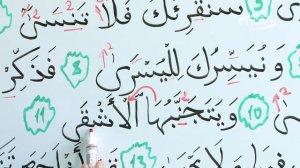 5 سَنُقْرِئُكَ فَلَا تَنسَىٰٓ
وَنُيَسِّرُكَ لِلْيُسْرَىٰ 8 فَذَكِّرْ
10 وَيَتَجَنَّبُهَا ٱلْأَشْقَى 11
13